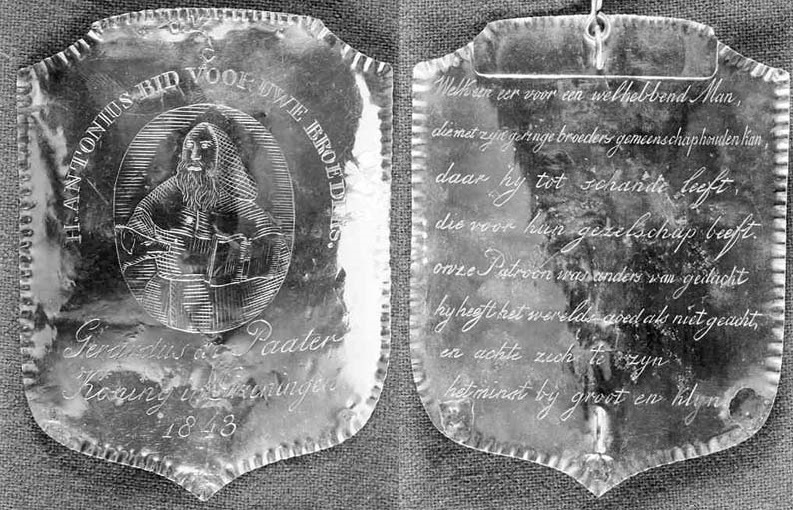 H. ANTONIUS BID VOOR UWE BROEDERS.
Gerardus de Paater
Koning in
1843
Welk een eer voor een welhebbend Man,
die met zijn geringe broeders gemeenschap houden kan,
daar hy tot schande leeft,
die voor hun gezelschap beeft
onze Patroon was anders van gedacht
hy heeft het werelds goed als niet geacht,
en achte zich te zyn
het minst by groot en klyn